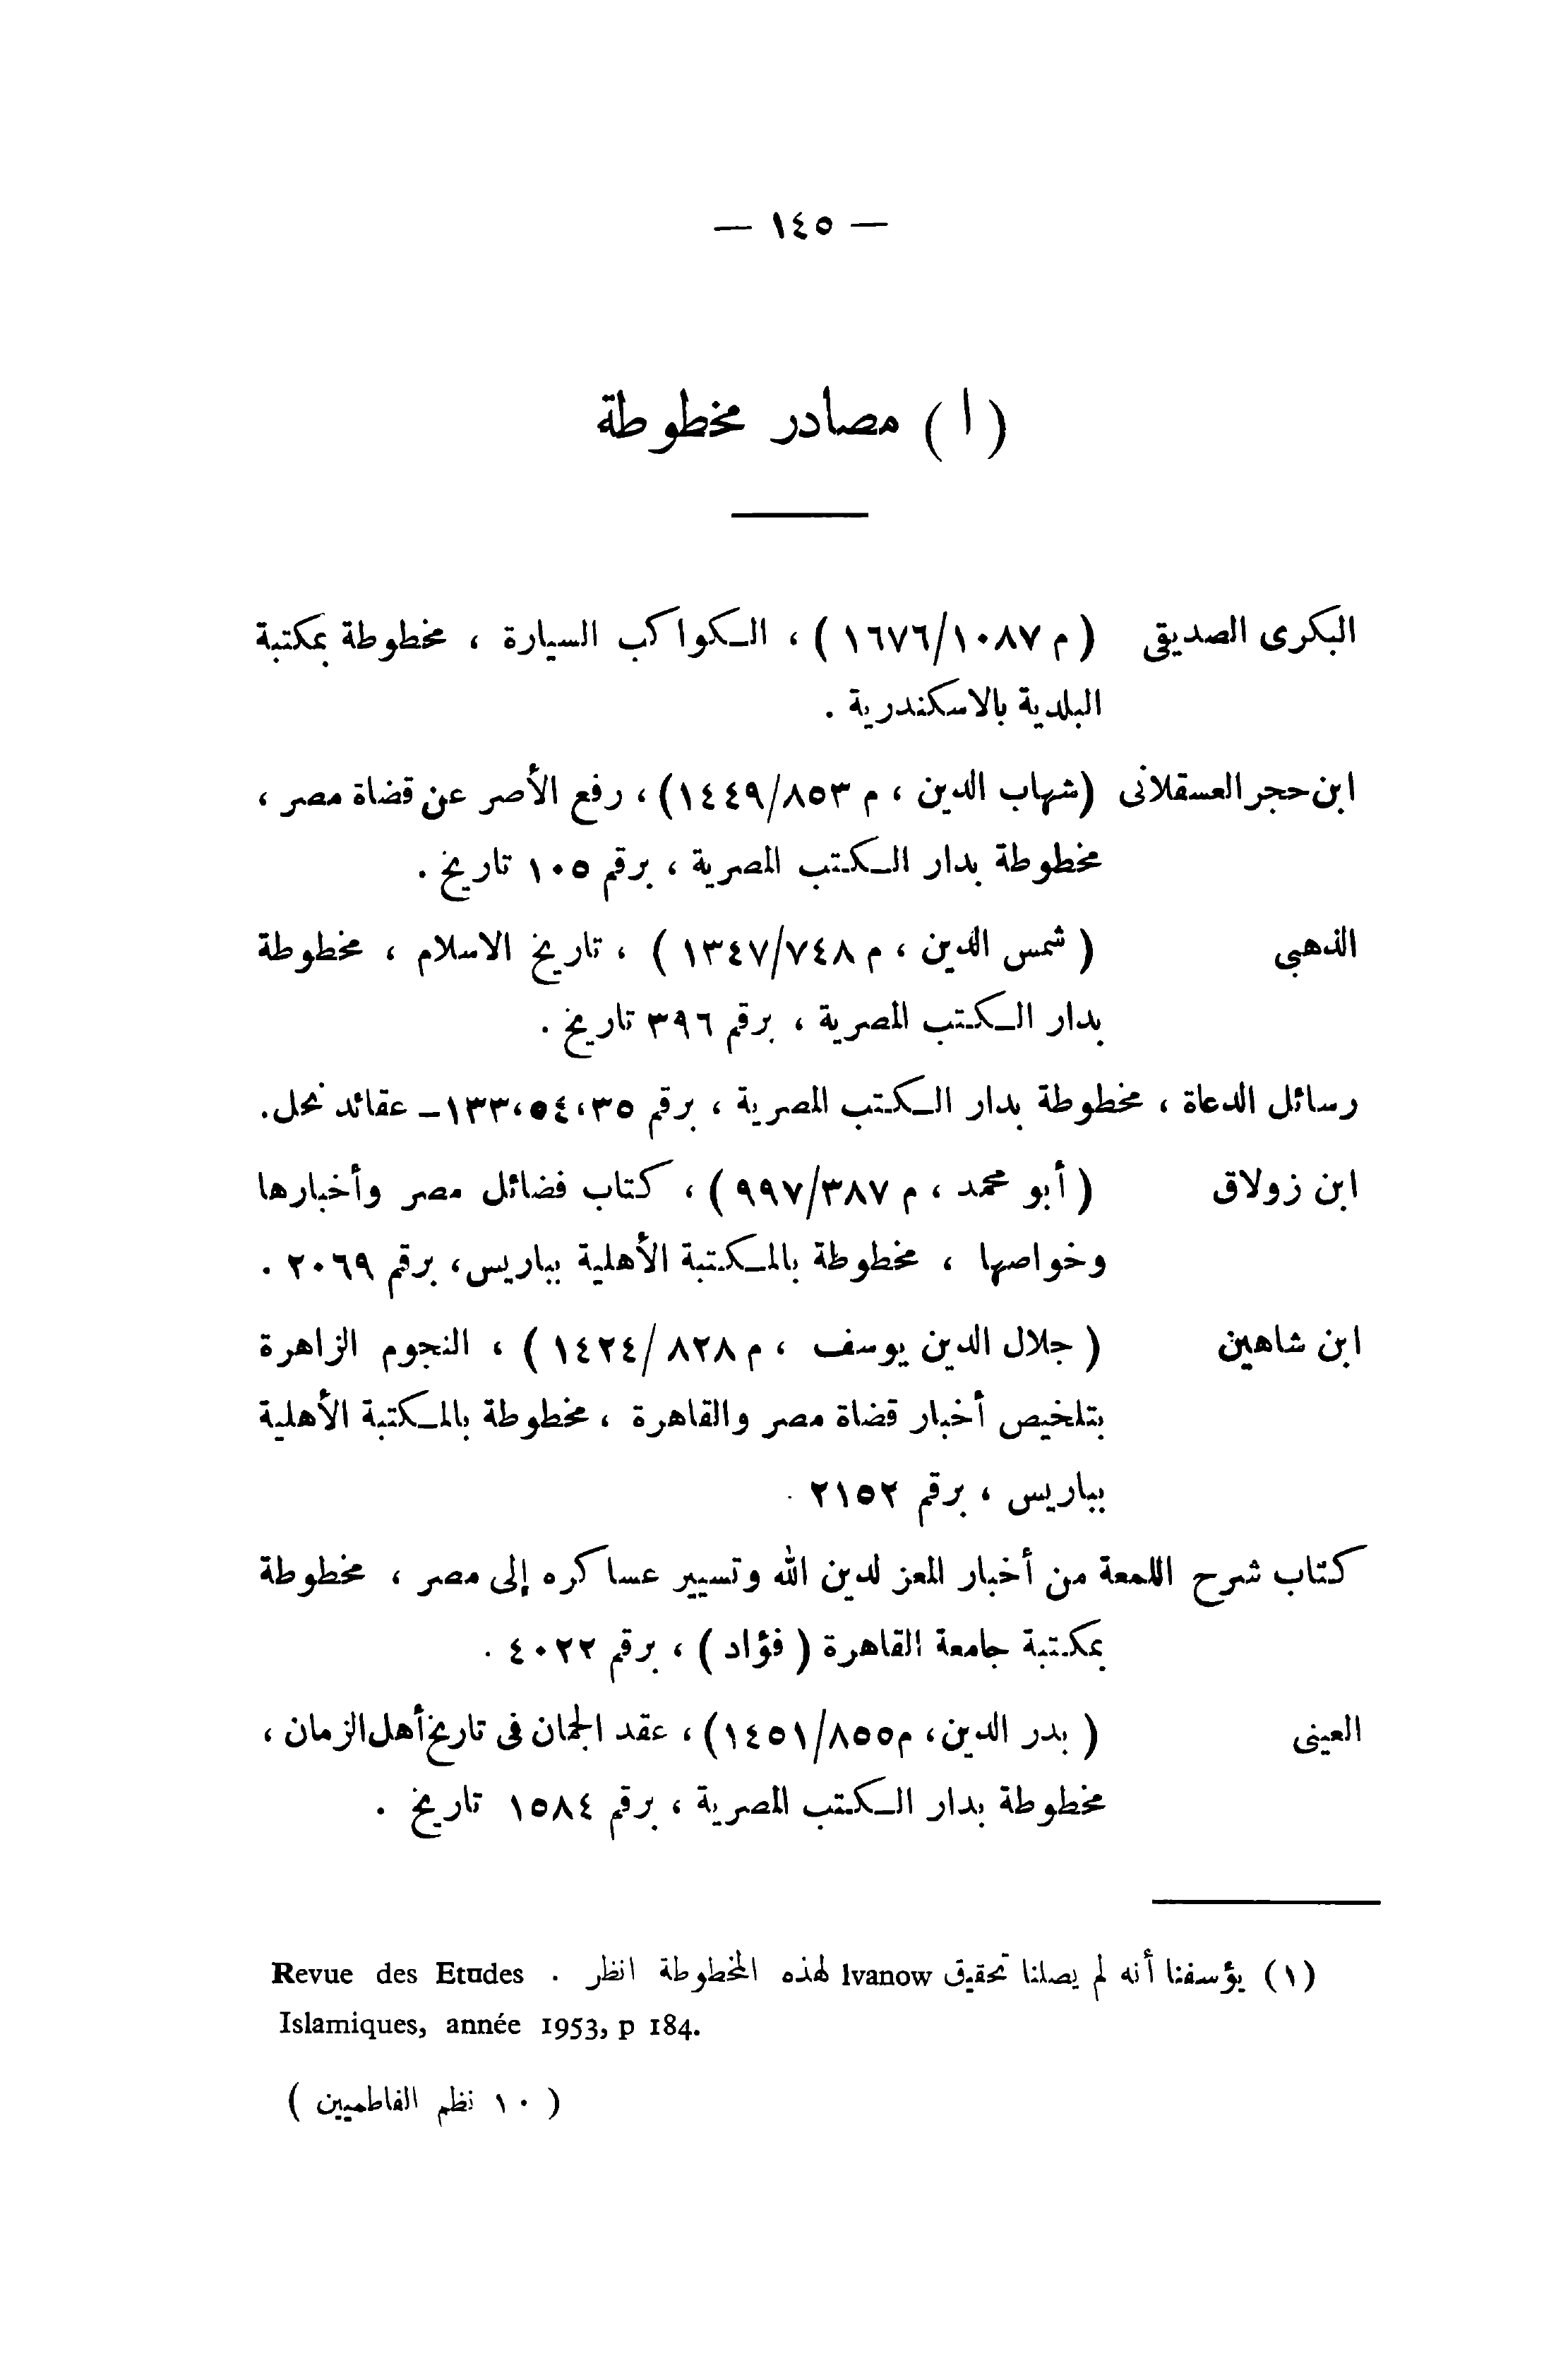 — ١٤٥ —
(ا) مصادر مخطوطة
البكرى الصديقى ( م ١٠٨٧/١٦٧٦ ) ، الكواكب السيارة ، مخطوطة بمكتبة
البلدية بالاسكندرية .
ابن حجر العسقلانى (شهاب الدين ، م ٨٥٣/١٤٤٩) ، رفع الأصر عن قضاة مصر ،
مخطوطة بدار الكتب المصرية ، برقم ١٠٥ تاريخ .
الذهبى ( شمس الدين ، م ٧٤٨/١٣٤٧ ) ، تاريخ الاسلام ، مخطوطة
بدار الكتب المصرية ، برقم ٣٩٦ تاريخ .
رسائل الدعاة ، مخطوطة بدار الكتب المصرية ، برقم ٣٥،٥٤،١٣٣ – عقائد نحل .
ابن زولاق ( أبو محمد ، م ٣٨٧/٩٩٧ ) ، كتاب فضائل مصر وأخبارها
وخواصها ، مخطوطة بالمكتبة الأهلية بباريس، برقم ٢٠٦٩ .
ابن شاهين ( جلال الدين يوسف ، م ٨٢٨/١٤٢٤ ) ، النجوم الزاهرة
بتلخيص أخبار قضاة مصر والقاهرة ، مخطوطة بالمكتبة الأهلية
بباريس ، برقم ٢١٥٢ .
كتاب شرح اللمعة من أخبار المعز لدين الله وتسيير عساكره إلى مصر ، مخطوطة
بمكتبة جامعة القاهرة ( فؤاد ) ، برقم ٤٠٢٢ .
العينى ( بدر الدين، م٨٥٥/١٤٥١) ، عقد الجمان فى تاريخ أهل الزمان ،
مخطوطة بدار الكتب المصرية ، برقم ١٥٨٤ تاريخ .
(١) يؤسفنا أنه لم يصلنا تحقيق Ivanow لهذه المخطوطة انظر . Revue des Etudes
Islamiques, année 1953, p 184.
( ١٠ نظم الفاطميين )